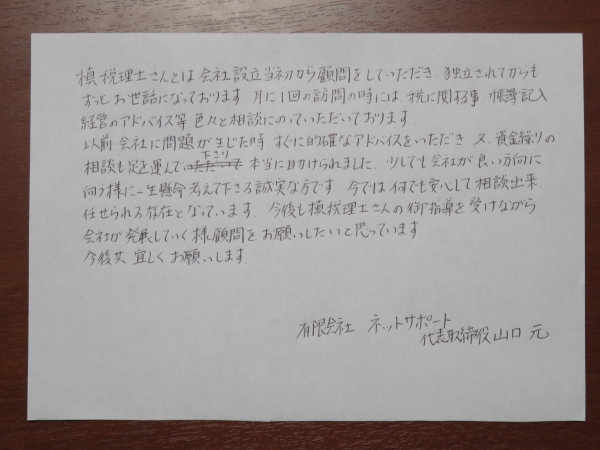 槙税理士さんとは会社設立当初から顧問をしていただき、独立されてからも
ずっとお世話になっております。月に1回の訪問の時には、税に関する事、帳簿記入
経営のアドバイス等 色々と相談にのっていただいております。
以前 会社に問題が生じた時 すぐに的確なアドバイスをいただき 又、資金繰りの
相談も足を運んで下さり 本当に助けられました。少しでも会社が良い方向に
向う様に一生懸命 考えて下さる誠実な方です。今では何でも安心して相談出来、
任せられる存在となっています。今後も槙税理士さんの御指導を受けながら
会社が発展していく様顧問をお願いしたいと思っています。
今後共 宜しくお願いします
有限会社 ネットサポート
代表取締役 山口 元